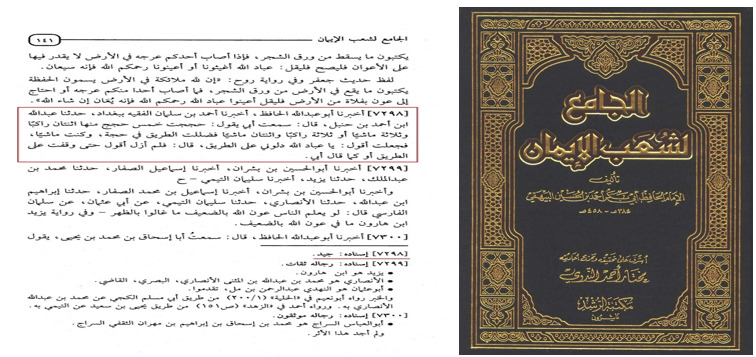 الجامع لشعب الإيمان
١٤١
يكتبون ما يسقط من ورق الشجر، فإذا أصاب أحدكم عرجه في الأرض لا يقدر فيها
على الأعوان فليصح فليقل: عباد الله أغيثونا أو أعينونا رحمكم الله فإنه سيعان.
لفظ حديث جعفر وفي رواية روح: «إن لله ملائكة في الأرض يسمون الحفظة
يكتبون ما يقع في الأرض من ورق الشجر، فما أصاب أحدا منكم عرجه أو احتاج
إلى عون بفلاة من الأرض فليقل أعينوا عباد الله رحمكم الله فإنه يُعَان إن شاء الله».
[٧٢٩٨] أخبرنا أبوعبدالله الحافظ، أخبرنا أحمد بن سلمان الفقيه ببغداد، حدثنا عبدالله
ابن أحمد بن حنبل، قال: سمعت أبي يقول: حججت خمس حجج منها اثنتان راكبًا
وثلاثة ماشيًا أو ثلاثة راكبًا واثنتان ماشيًا فضللت الطريق في حجة، وكنت ماشيًا،
فجعلت أقول: يا عباد الله دلوني على الطريق، قال: فلم أزل أقول حتى وقفت على
الطريق أو كما قال أبي.
[٧٢٩٩] أخبرنا أبوالحسين بن بشران، أخبرنا إسماعيل الصفار، حدثنا محمد بن
عبدالملك، حدثنا يزيد، أخبرنا سليمان التيمي – ح
وأخبرنا أبوالحسين بن بشران، أخبرنا إسماعيل بن محمد الصفار، حدثنا إبراهيم
ابن عبدالله، حدثنا الأنصاري، حدثنا سليمان التيمي، عن أبي عثمان، عن سلمان
الفارسي قال: لو يعلم الناس عون الله بالضعيف ما غالوا بالظهر – وفي رواية يزيد
ابن هارون ما في عون الله بالضعيف.
[٧٣٠٠] أخبرنا أبوعبدالله الحافظ، قال: سمعتُ أبا إسحاق بن محمد بن يحيى، يقول
[٧٢٩٨] إسناده: جيد.
[٧٢٩٩] إسناده: رجاله ثقات.
• يزيد هو ابن هارون.
• الأنصاري هو محمد بن عبدالله بن المثنى الأنصاري، البصري، القاضي.
• أبوعثمان هو النهدي عبدالرحمن بن مل، تقدموا.
والخبر رواه أبونعيم في «الحلية» (٢٠٠/١) من طريق أبي مسلم الكجي عن محمد بن عبدالله
الأنصاري به. ورواه أحمد في «الزهد» (ص١٥١) من طريق يحيى بن سعيد عن التيمي به.
[٧٣٠٠] إسناده: رجاله موثقون.
• أبوالعباس السراج هو محمد بن إسحاق بن إبراهيم بن مهران الثقفي السراج.
ولم أجد هذا الأثر.
الجامع
لشعب الإيمان
تأليف
الإمام الحافظ أبي بكر أحمد بن الحسين البيهقي
٣٨٤هـ - ٤٥٨هـ
مختار أحمد الندوي
مكتبة الرشد
ناشرون